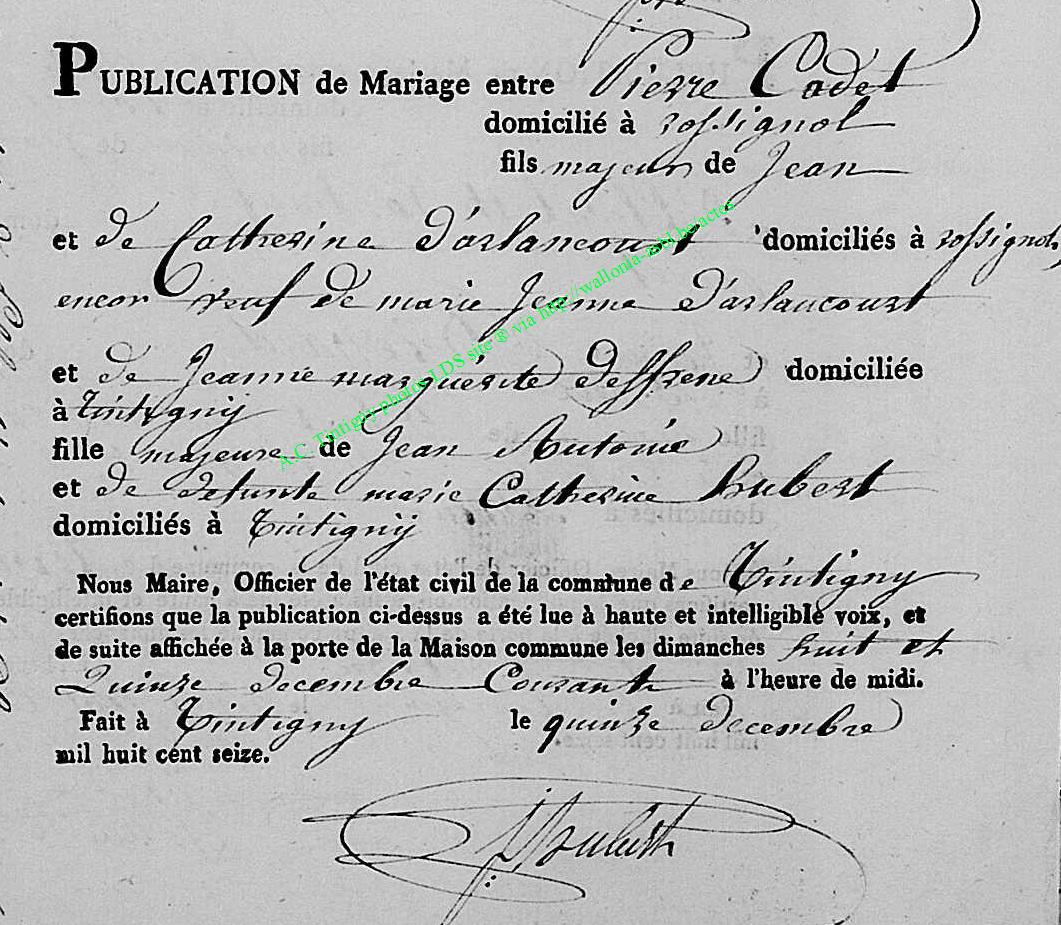 PUBLICATION de Mariage entre Pierre Cadet
domicilié à rossignol
fils majeur de Jean
et de Catherine D'arlancourt domiciliés à rossignol
encor veuf de marie Jeanne D'arlancourt
et de Jeanne marguérite deffrene domiciliée
à tintigny
fille majeure de Jean Antoine
et de defunte marie Catherine hubert
domiciliés à Tintigny
Nous Maire, Officier de l'état civil de la commune de Tintigny
certifions que la publication ci-dessus a été lue à haute et intelligible voix, et
de suite affichée à la porte de la Maison commune les dimanches huit et
Quinze decembre Courant à l'heure de midi.
Fait à Tintigny le quinze decembre
mil huit cent seize.
A.C. Tintigny photos LDS site ® via http://wallonia-asbl.be/actes